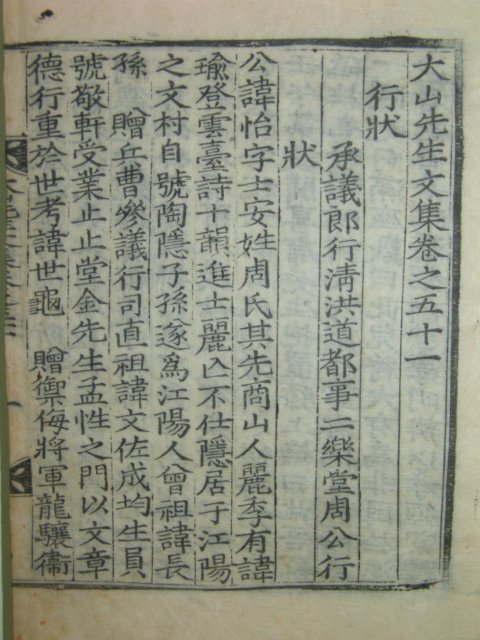 大山先生文集卷之五十一
行狀
承議郎行淸洪道都事二樂堂周公行
狀
公諱怡字士安姓周氏其先商山人麗季有諱
瑜登雲臺詩十韻進士麗亡不仕隱居于江陽
之文村自號陶隱子孫遂爲江陽人曾祖諱長
孫 贈兵曹參議行司直祖諱文佐成均生員
號敬軒受業止止堂金先生孟性之門以文章
德行重於世考諱世龜 贈禦侮將軍龍驤衞